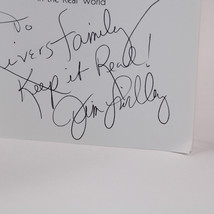 of the Real World
To
ivers family
Keep it Real!
Jim